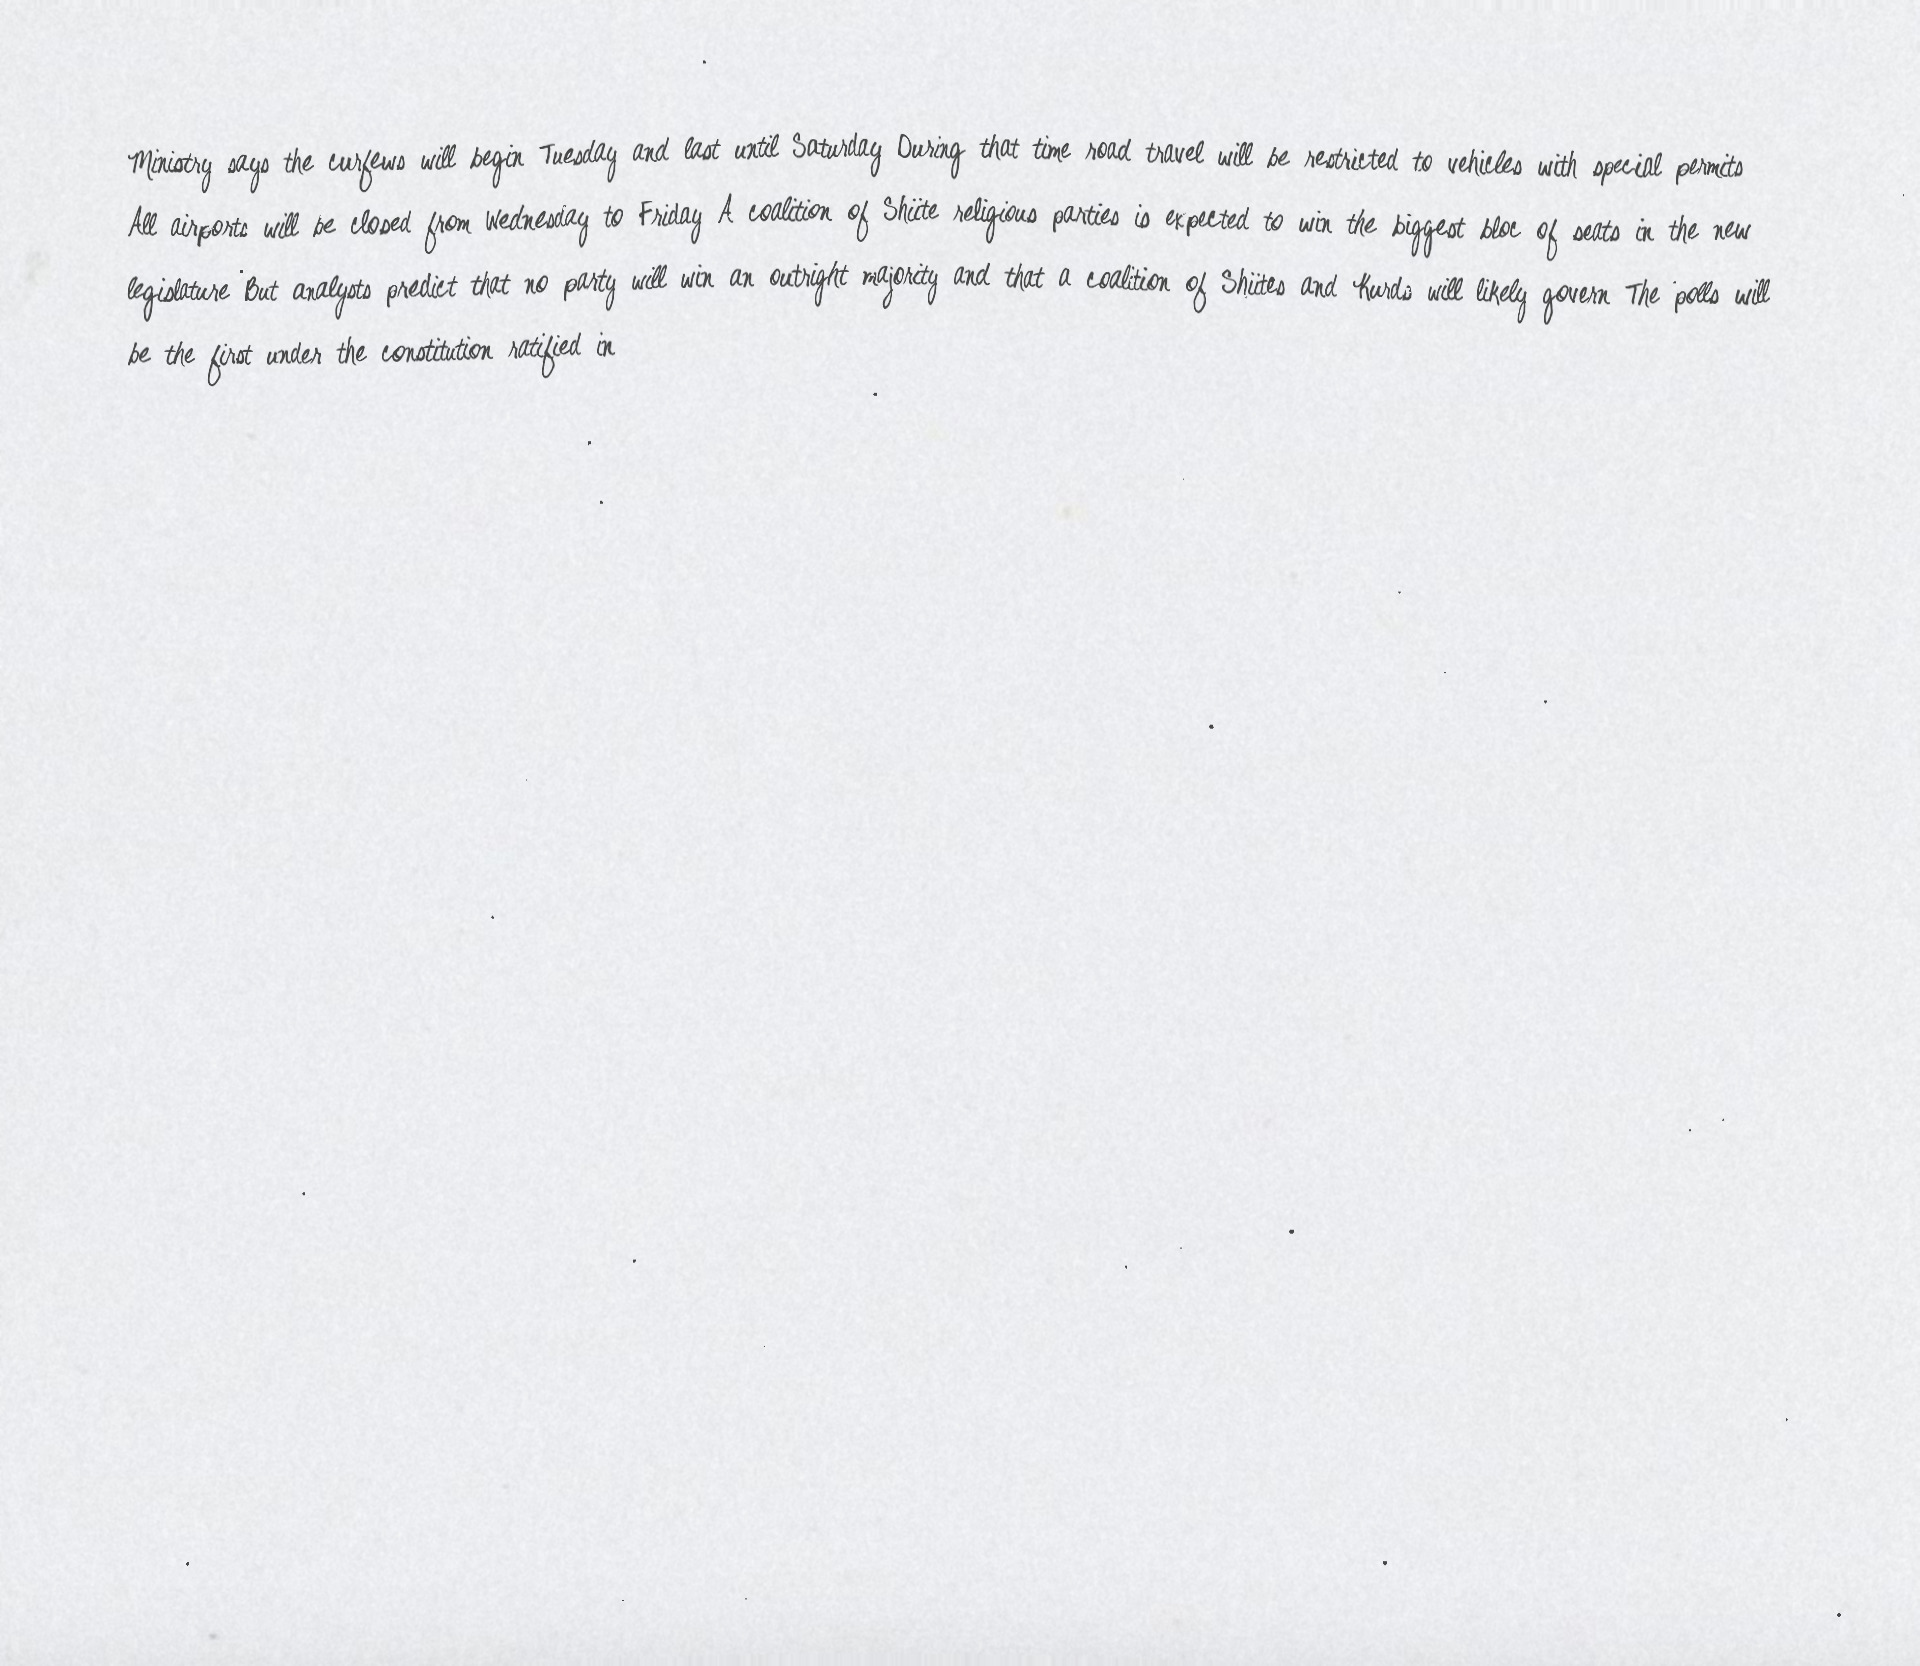 Ministry says the curfews will begin Tuesday and last until Saturday During that time road travel will be restricted to vehicles with special permits
All airports will be closed from Wednesday to Friday A coalition of Shiite religious parties is expected to win the biggest bloc of seats in the new
legislature But analysts predict that no party will win an outright majority and that a coalition of Shiites and Kurds will likely govern The polls will
be the first under the constitution ratified in